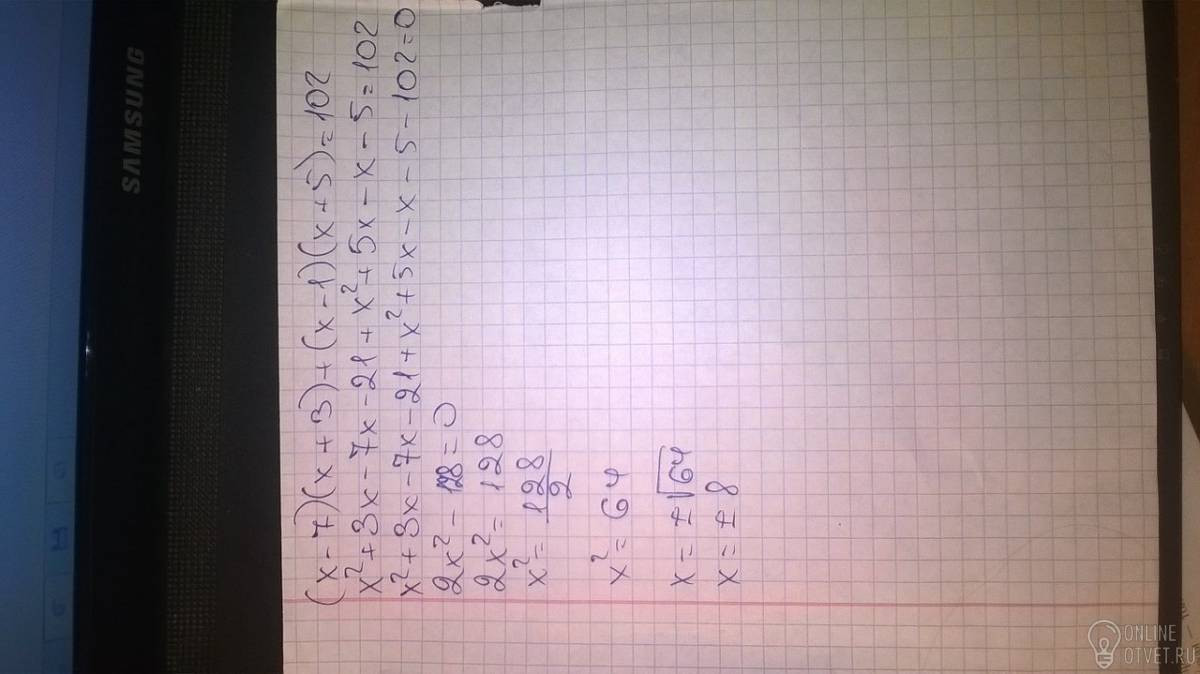 SAMSUNG
(x-7)(x+3)+(x-1)(x+5)=102
x²+3x-7x-21+x²+5x-x-5=102
x²+3x-7x-21+x²+5x-x-5-102=0
2x²-128=0
2x²=128
x²=128/2
x²=64
x=±√64
x=±8
ONLINE
OTVET.RU